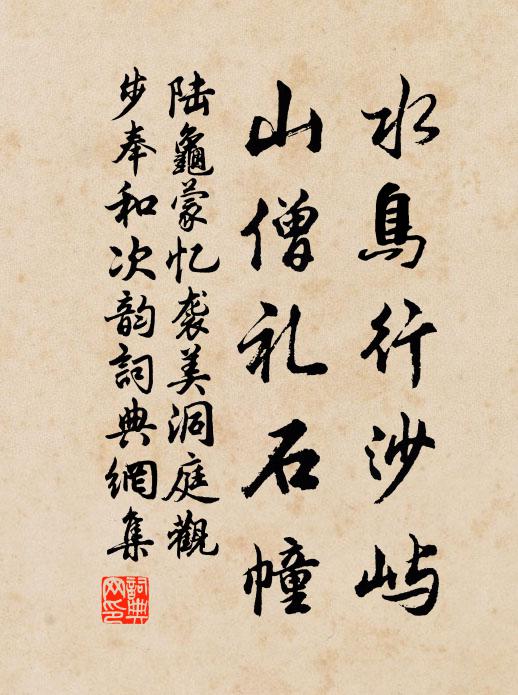 水鳥行沙屿
山僧礼石幢
陆龜蒙忆袭美洞庭觀
步奉和次韵詞典網集
詞典
网印